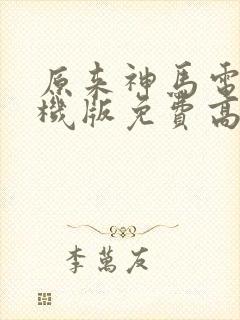 原来神马電
機版免費高
李萬友